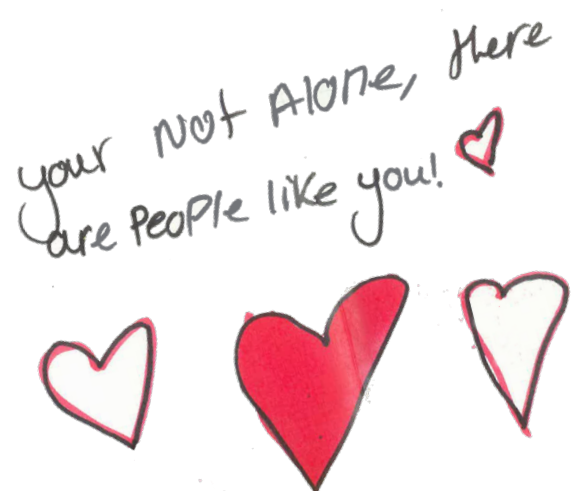 your Not Alone, there
are PeoPle like you!